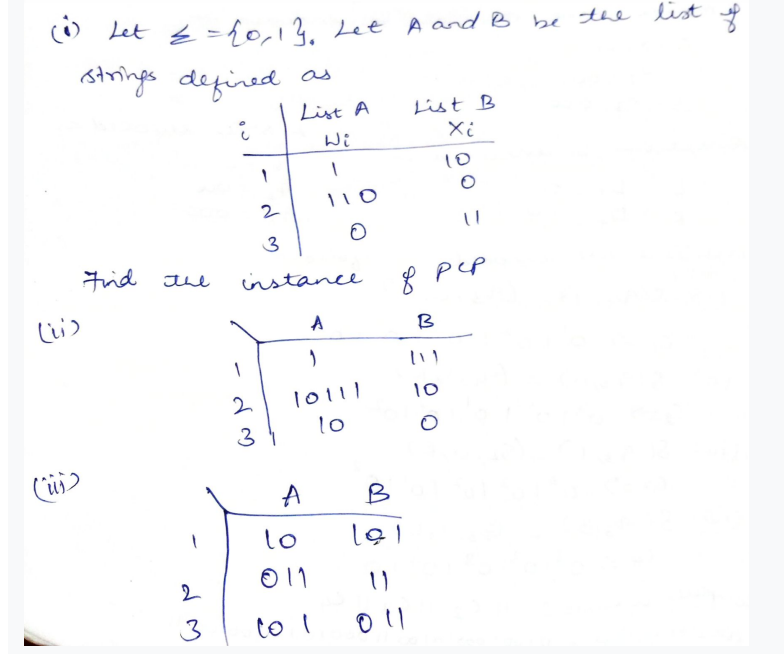 (i) Let Σ = {0,1}. Let A and B be the list of
strings defined as
i List A List B
Wi Xi
1 1 10
2 110 0
3 0 11
Find the instance of PCP
(ii) A B
1 1 111
2 10111 10
3 10 0
(iii) A B
1 10 101
2 011 11
3 101 011